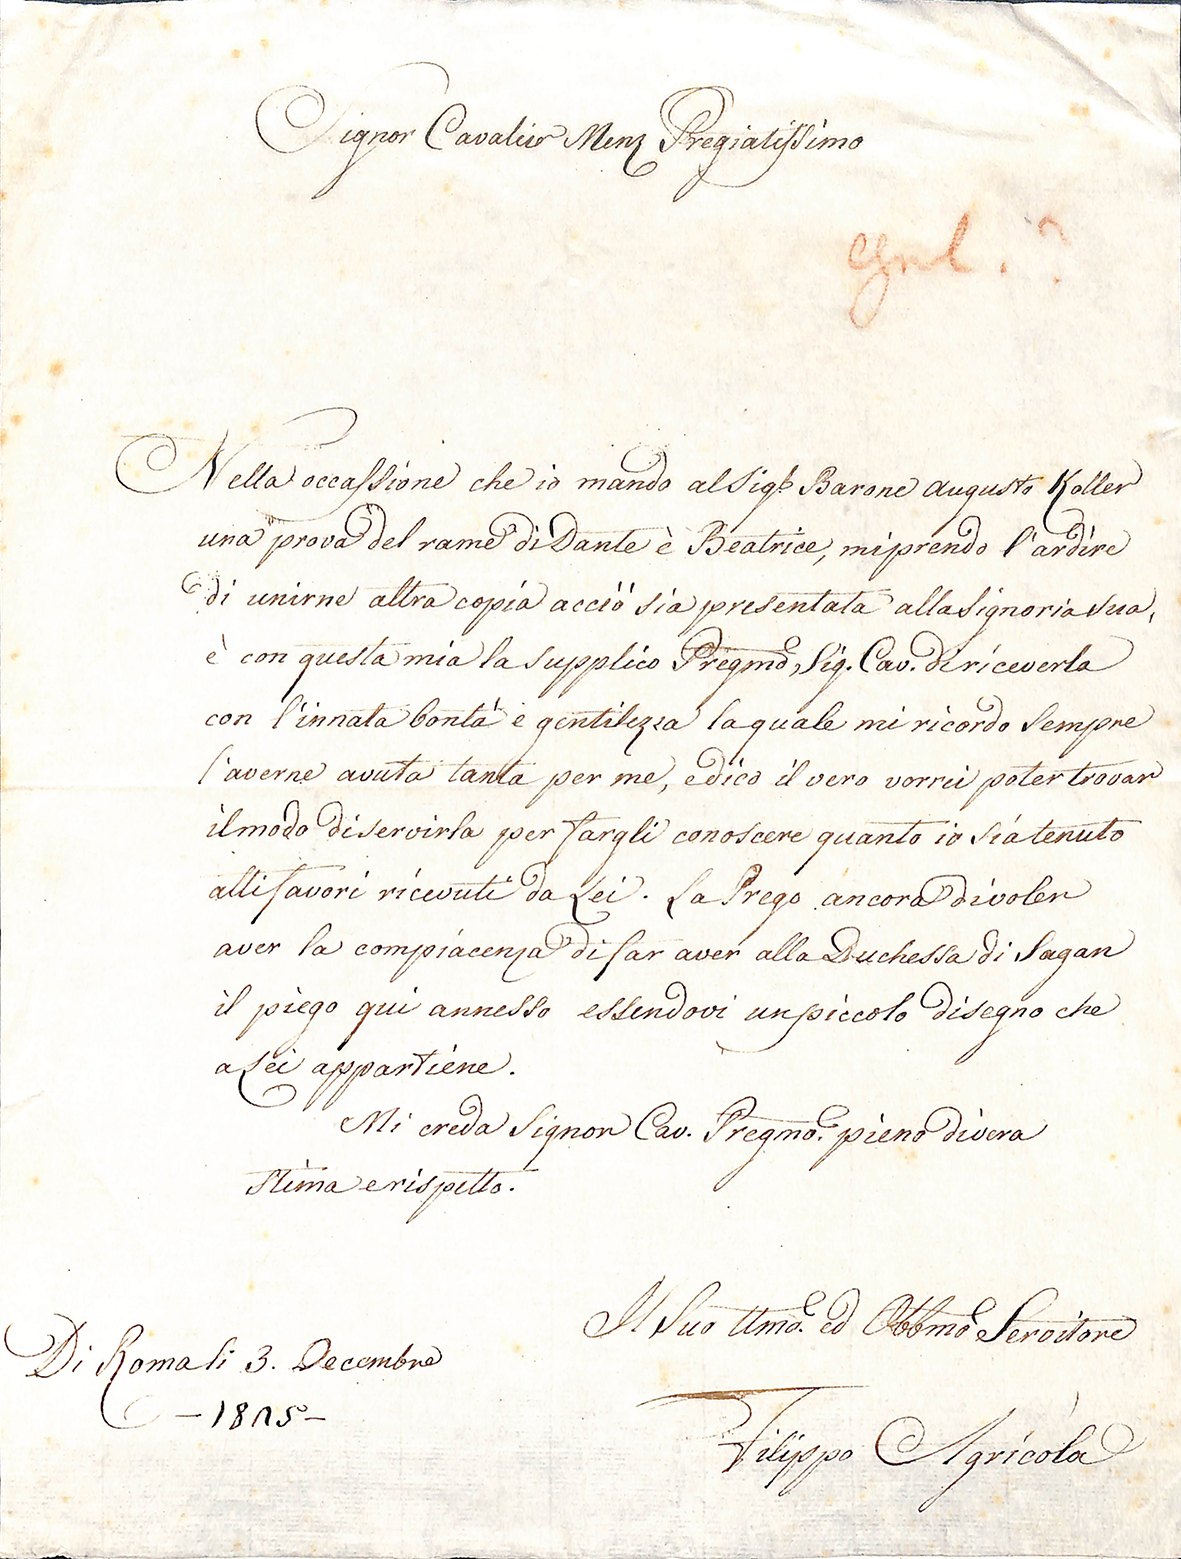 Signor Cavalier Menz Pregiatissimo
Nella occassione che io mando al Sigr. Barone Augusto Koller
una prova del rame di Dante è Beatrice, mi prendo l'ardire
di unirne altra copia acciò sia presentata alla Signoria sua,
è con questa mia la supplico Pregmo, Sig. Cav. di riceverla
con l'innata bontà e gentilezza la quale mi ricordo sempre
l'averne avuta tanta per me, e dico il vero vorrei poter trovar
il modo di servirla per fargli conoscere quanto io sia tenuto
alli favori ricevuti da Lei. La Prego ancora di voler
aver la compiacenza di far aver alla Duchessa di Sagan
il piego qui annesso essendovi un piccolo disegno che
a Lei appartiene.
Mi creda Signor Cav. Pregmo. pieno di vera
stima e rispetto.
Il Suo Umo. ed Obbmo Servitore
Di Roma li 3. Decembre
Filippo Agricola